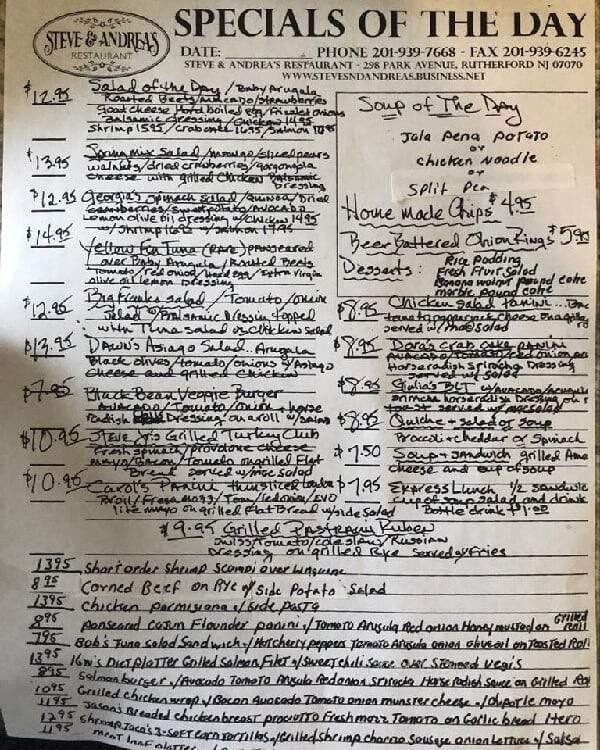 STEVE & ANDREA'S
RESTAURANT
SPECIALS OF THE DAY
DATE: PHONE 201-939-7668 - FAX 201-939-6245
STEVE & ANDREA'S RESTAURANT - 298 PARK AVENUE, RUTHERFORD NJ 07070
WWW.STEVESNDANDREAS.BUSINESS.NET
$12.95 Salad of the Day / Baby Arugula
Roasted Beets/avocado/strawberries
Goat cheese Hard boiled egg/
Balsamic dressing / chicken 1495
shrimp 1595/crabcake 1695/salmon 1895
$13.95 Spring mix Salad / mango/sliced pears
walnuts/dried cranberries/gorgonzola
cheese with grilled chicken Balsamic
Dressing
$12.95 Georgia's Spinach salad/Quinoa/Dried
cranberries/sweet potato/avocado
Lemon olive oil dressing w/chicken 1495
w/shrimp 1695 w/salmon 1795
$14.95 Yellow Fin Tuna (RARE) panseared
over Baby Arugula / Roasted Beets
tomato/red onion/hard egg/Extra virgin
olive oil lemon dressing
$12.95 Big Freaks salad / Tomato/onion
salad / Balsamic Dressing topped
with Tuna salad or chicken salad
$13.95 Dawn's Asiago Salad.. Arugula
Black olives/tomato/onions/Asiago
cheese and grilled chicken
$7.95 Black Bean Veggie Burger
Avocado/Tomato/onion + horse
radish Dressing on a roll w/salad
$10.95 Steve Jr's Grilled Turkey Club
Fresh spinach/provolone cheese
mayo/Bacon/Tomato on grilled Flat
Bread served w/mac salad
$10.95 Carol's Panini thin sliced London
Broil/Fresh mozz/Tom/red onion/EVO
lite mayo on grilled Flat Bread w/side salad
$9.95 Grilled Pastrami Ruben
swiss/tomato/coleslaw/Russian
Dressing on grilled Rye served w/fries
Soup of The Day
Jala pena potato
or
chicken Noodle
or
Split Pea
Home made Chips $4.95
Beer Battered Onion Rings $5.95
Desserts: Rice Pudding
Fresh Fruit Salad
Banana walnut pound cake
marble pound cake
$8.95 Chicken salad panini...
tomato pepperjack cheese on
served w/side salad
$8.95 Dora's crab cake panini
Avocado/tomato/red onion on
Horseradish sriracha Dressing
served w/salad
$8.95 Giulia's BLT w/avocado/arugula
sriracha horseradish Dressing on
toast served w/mac salad
$8.95 Quiche + salad or soup
Broccoli + cheddar or Spinach
$7.50 Soup + sandwich grilled Ame
cheese and cup of soup
$7.95 Express Lunch 1/2 sandwich
cup of soup salad and drink
Bottle drink $1.00
1395 Short order Shrimp Scampi over Linguine
895 Corned Beef on Rye w/ Side Potato Salad
1395 Chicken parmigiana w/ side Pasta
895 panseared cajun Flounder panini w/ Tomato Arugula Red onion Honey mustard on Grilled Roll
795 Bob's Tuna salad Sandwich w/ Hot cherry peppers Tomato Arugula onion olive oil on Toasted Roll
1395 Kim's Diet platter Grilled Salmon Filet w/ sweet chili sauce over steamed vegis
895 Salmon burger w/ Avocado Tomato Arugula Red onion Sriracha Horse radish sauce on Grilled Roll
1095 Grilled chicken wrap w/ Bacon Avocado Tomato onion munster cheese w/ chipotle mayo
1195 Jason's Breaded chicken breast prociotto Fresh mozz Tomato on Garlic bread Hero
1295 Shrimp Taco's 3-soft corn tortillas w/ Grilled shrimp chorizo Sausage onion Lettuce w/ Salsa
1195 meat loaf platter